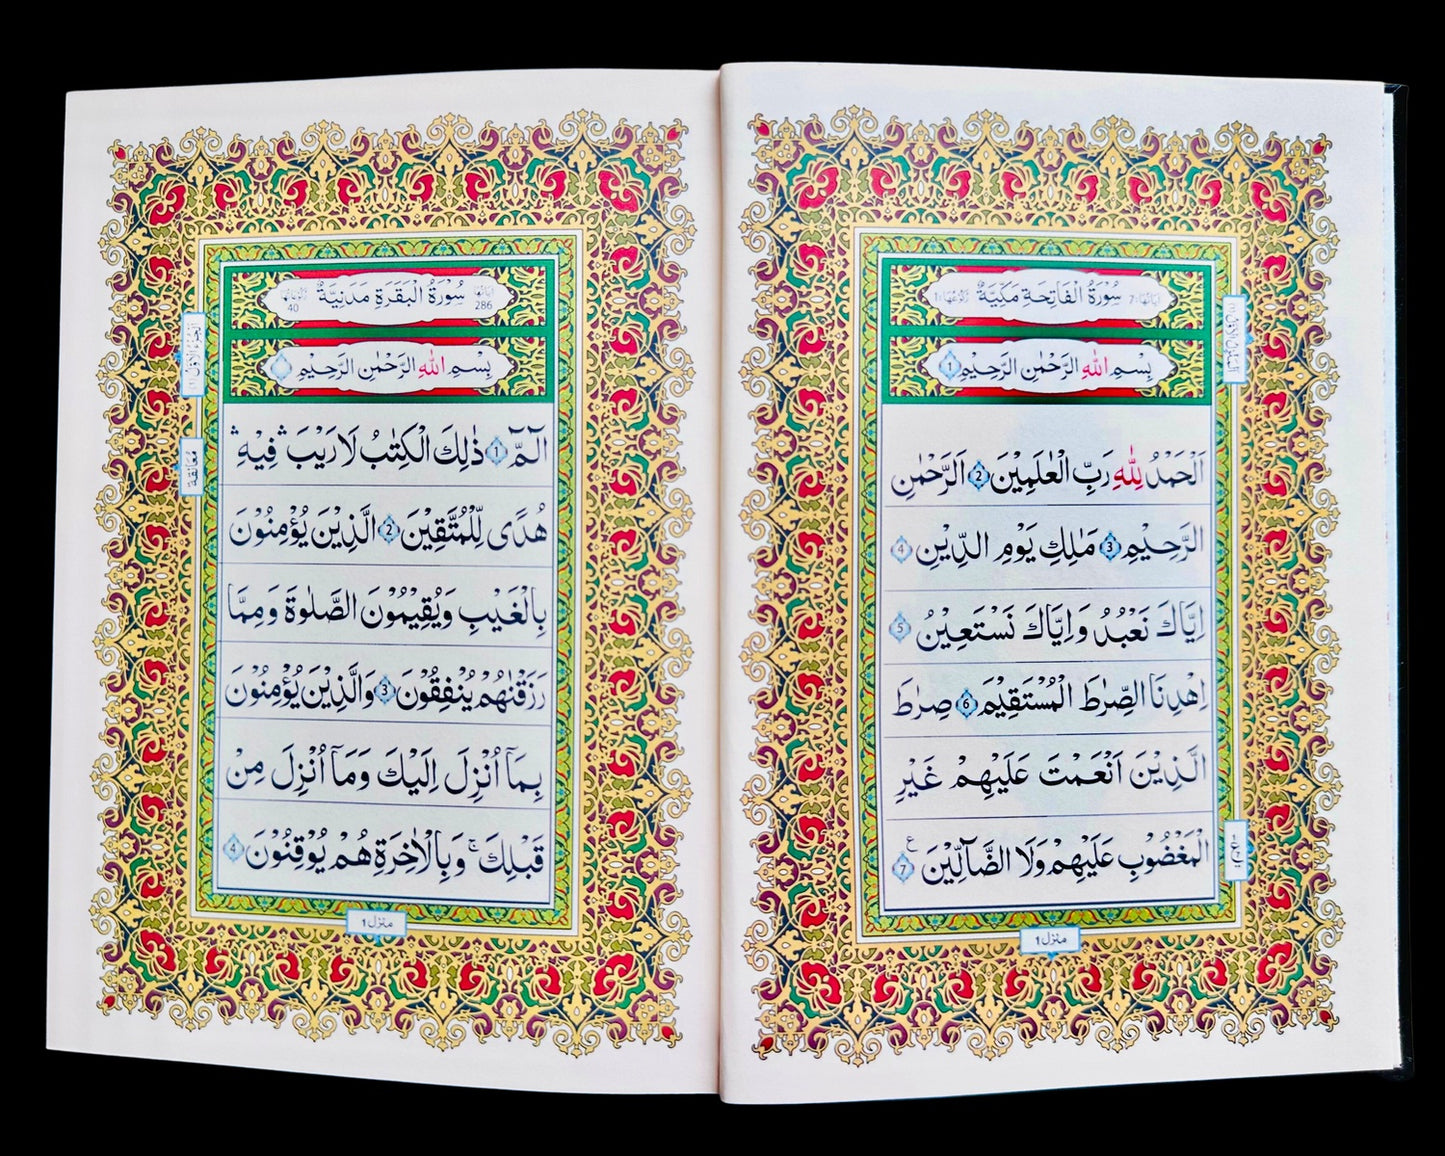 سُوْرَةُ الْفَاتِحَةِ مَكِّيَّةٌ
اٰيَاتُهَا:7
رُكُوْعُهَا:1
بِسْمِ اللهِ الرَّحْمٰنِ الرَّحِيْمِ 1
اَلْحَمْدُ لِلّٰهِ رَبِّ الْعٰلَمِيْنَ 2 اَلرَّحْمٰنِ
الرَّحِيْمِ 3 مٰلِكِ يَوْمِ الدِّيْنِ 4
اِيَّاكَ نَعْبُدُ وَاِيَّاكَ نَسْتَعِيْنُ 5
اِهْدِنَا الصِّرٰطَ الْمُسْتَقِيْمَ 6 صِرٰطَ
الَّذِيْنَ اَنْعَمْتَ عَلَيْهِمْ غَيْرِ
الْمَغْضُوْبِ عَلَيْهِمْ وَلَا الضَّآلِّيْنَ ع 7
منزل 1
سُوْرَةُ الْبَقَرَةِ مَدَنِيَّةٌ
اٰيَاتُهَا 286
رُكُوْعَاتُهَا 40
بِسْمِ اللهِ الرَّحْمٰنِ الرَّحِيْمِ
الٓمّٓ 1 ذٰلِكَ الْكِتٰبُ لَا رَيْبَ ۛ فِيْهِ ۛ
هُدًى لِّلْمُتَّقِيْنَ 2 الَّذِيْنَ يُؤْمِنُوْنَ
بِالْغَيْبِ وَيُقِيْمُوْنَ الصَّلٰوةَ وَمِمَّا
رَزَقْنٰهُمْ يُنْفِقُوْنَ 3 وَالَّذِيْنَ يُؤْمِنُوْنَ
بِمَآ اُنْزِلَ اِلَيْكَ وَمَآ اُنْزِلَ مِنْ
قَبْلِكَ ۚ وَبِالْاٰخِرَةِ هُمْ يُوْقِنُوْنَ 4
مُعَانَقَة
منزل 1